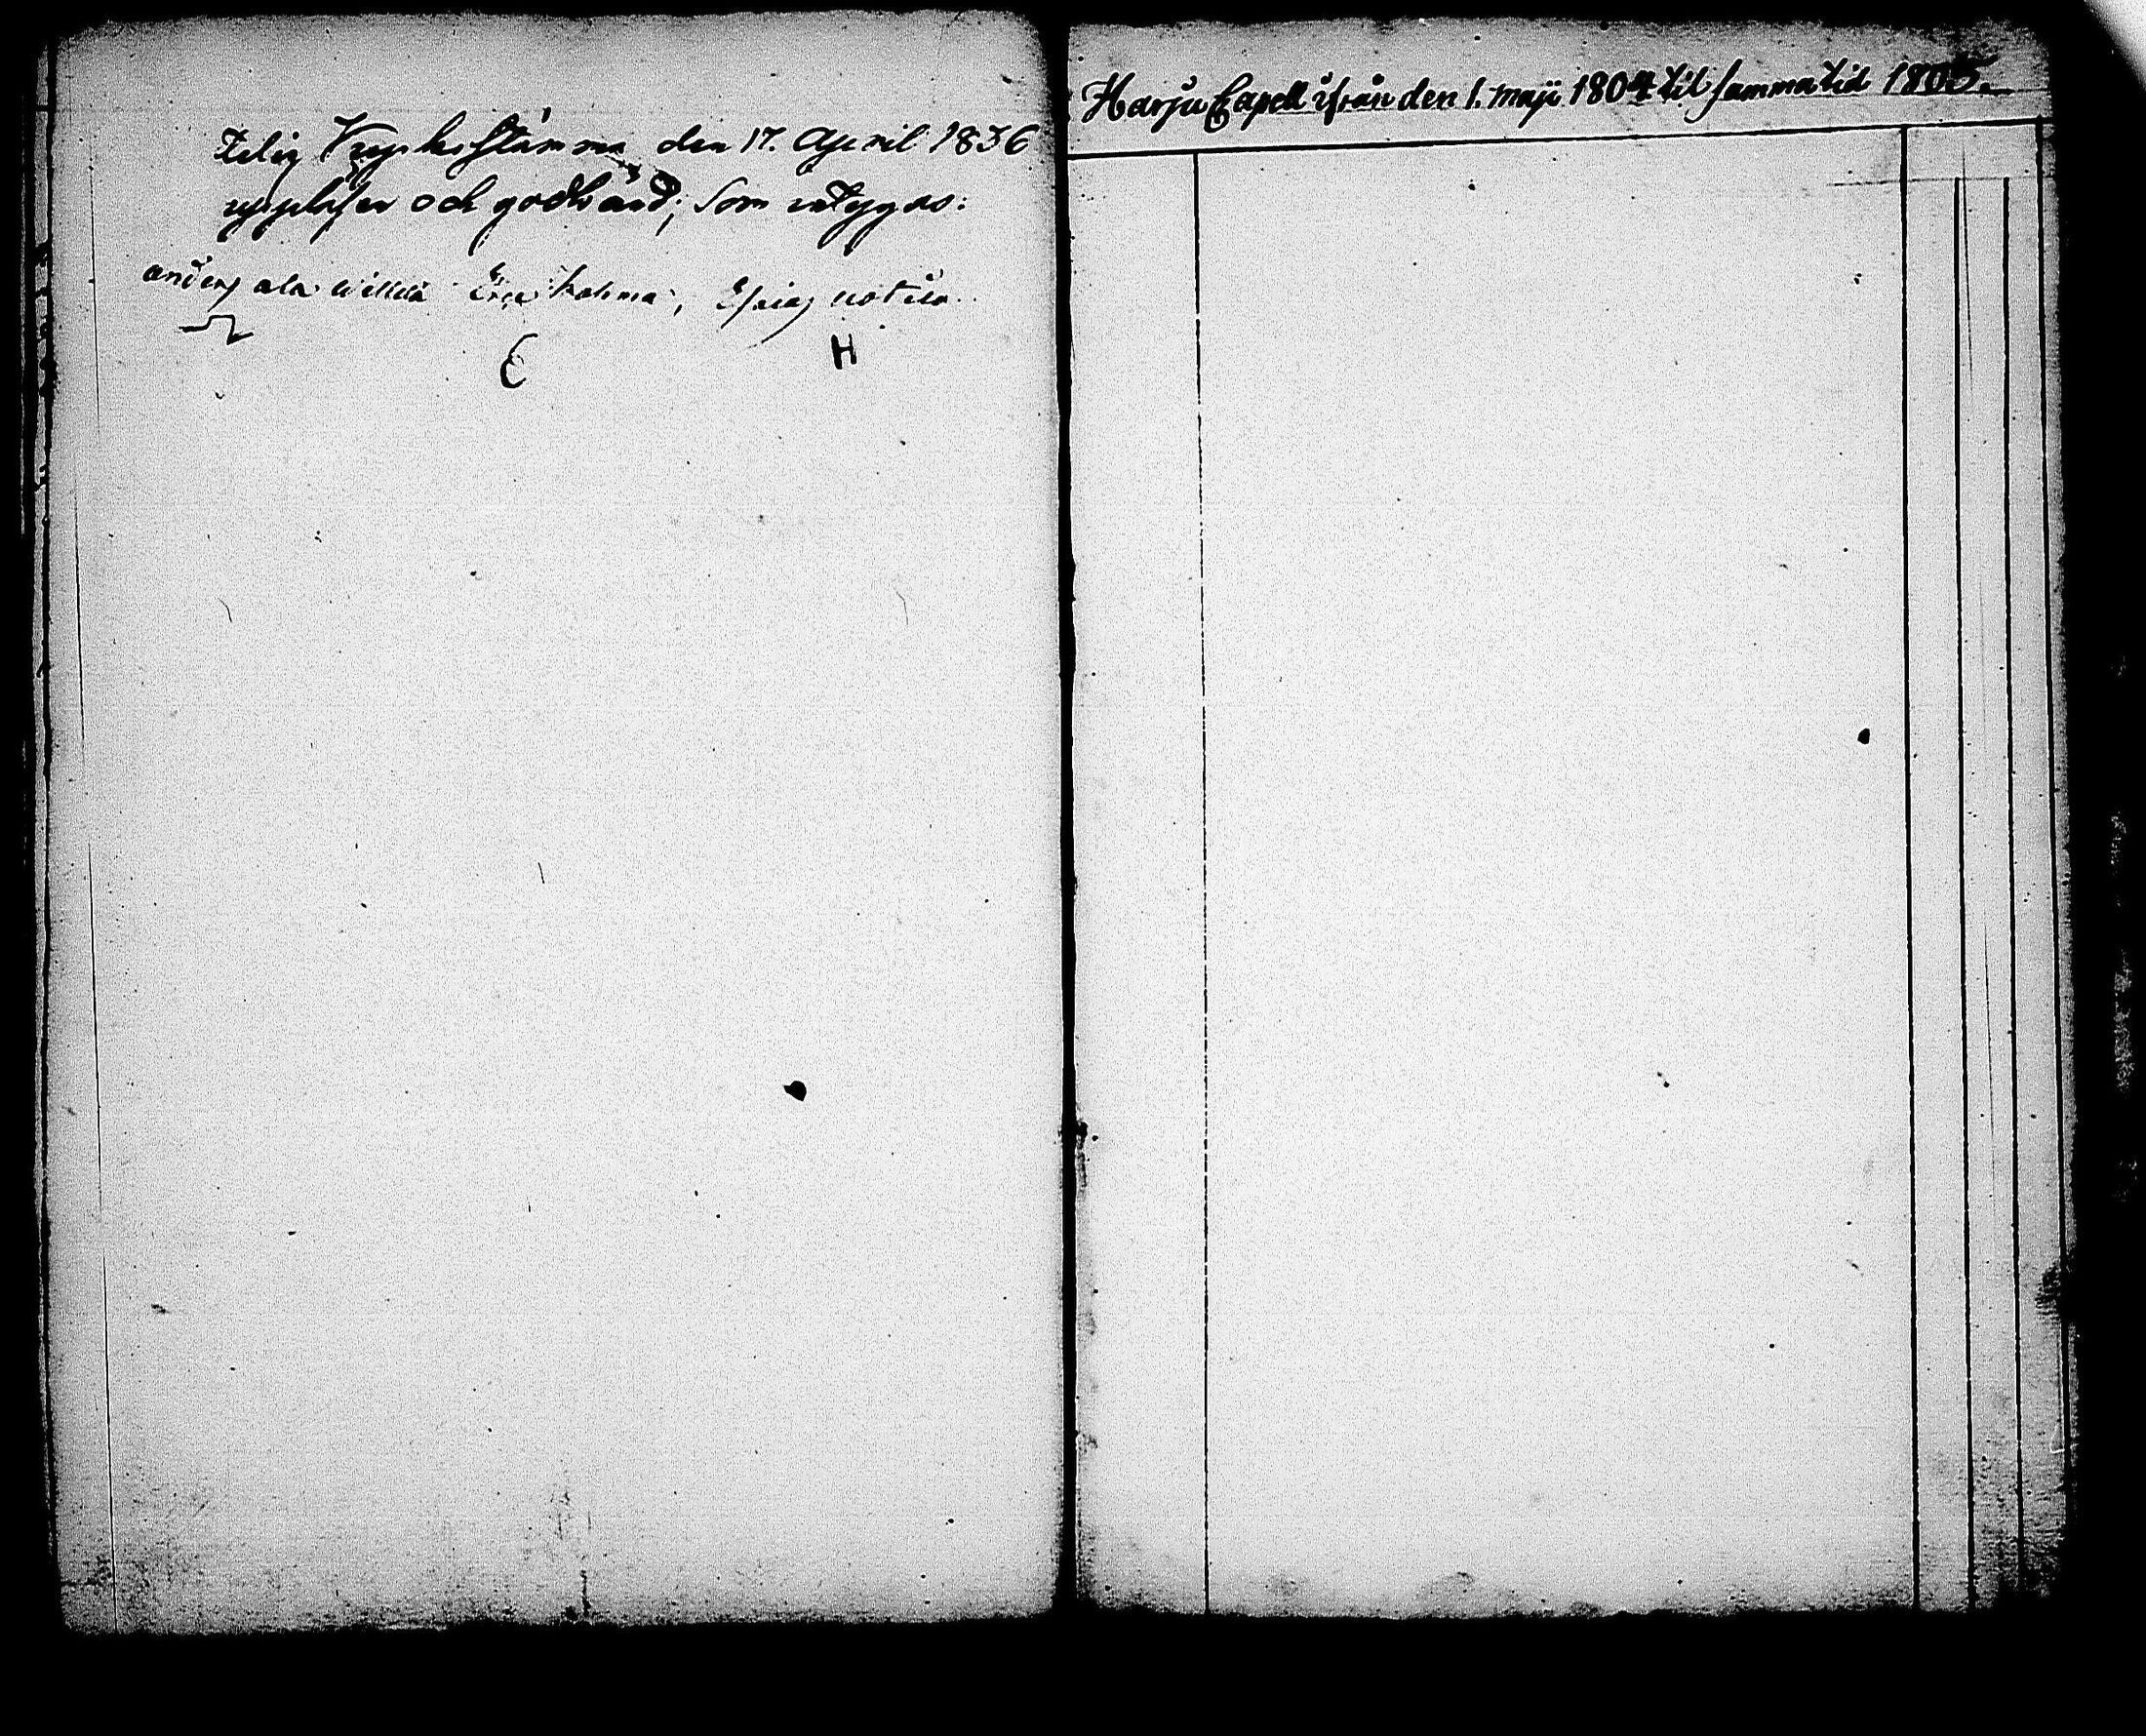 Kyrkostämma den 17. April 1836
uppläsen och godkänd; Som intygas:
anders ala willilä Eric kohma, Esaias
E H
Harju Capell ifrån den 1. maji 1804 til samma tid 1805.